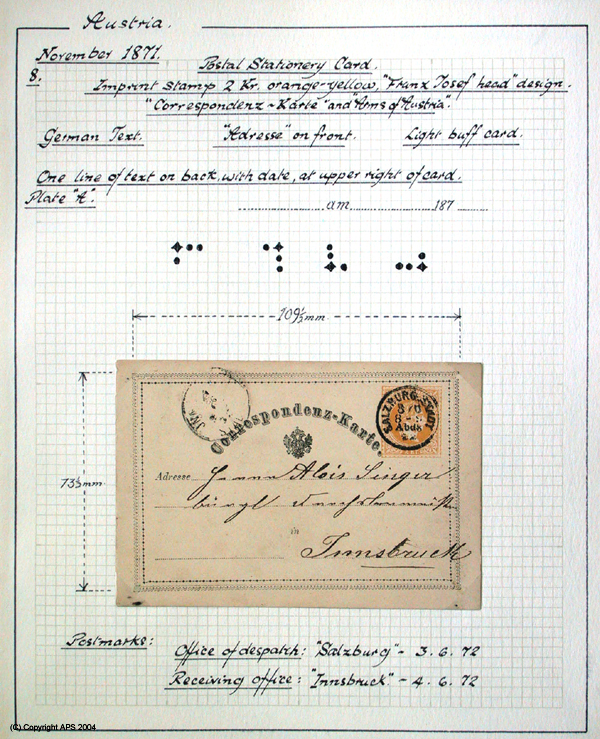 Austria.
November 1871.
8.
Postal Stationery Card.
Imprint stamp 2 Kr. orange-yellow, "Franz Josef head" design.
"Correspondenz-Karte" and "Arms of Austria".
German Text. "Adresse" on front. Light buff card.
One line of text on back, with date, at upper right of card.
Plate "A".
am 187
109½ mm
73½ mm
Correspondenz-Karte.
SALZBURG STADT
3/6
Abds
Adresse Herrn Alois Singer
bürgl
in
Innsbruck
Postmarks:
Office of despatch: "Salzburg" - 3. 6. 72
Receiving office: "Innsbruck" - 4. 6. 72
(C) Copyright APS 2004